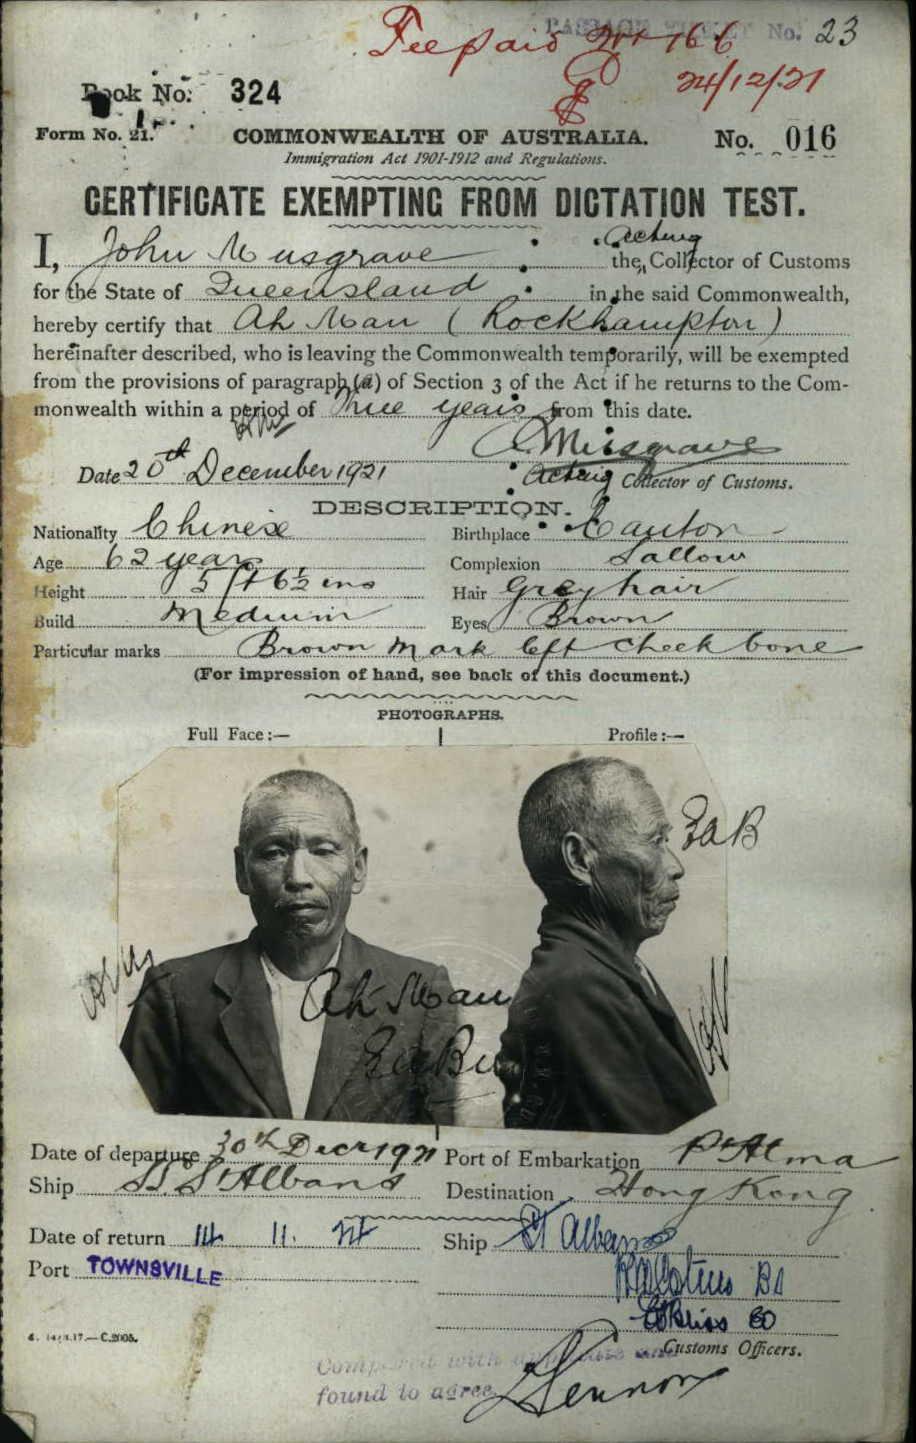 PASSAGE TICKET No. 23
Fee paid 166
24/12/21
Book No: 324
Form No. 21. COMMONWEALTH OF AUSTRALIA. No. 016
Immigration Act 1901-1912 and Regulations.
CERTIFICATE EXEMPTING FROM DICTATION TEST.
I, John Musgrave the Acting Collector of Customs
for the State of Queensland in the said Commonwealth,
hereby certify that Ah Man (Rockhampton)
hereinafter described, who is leaving the Commonwealth temporarily, will be exempted
from the provisions of paragraph (a) of Section 3 of the Act if he returns to the Com-
monwealth within a period of Three years from this date.
Musgrave
Date 20th December 1921 Acting Collector of Customs.
DESCRIPTION.
Nationality Chinese Birthplace Canton
Age 62 years Complexion Sallow
Height 5 ft 6½ ins Hair Grey hair
Build Medium Eyes Brown
Particular marks Brown Mark left cheek bone
(For impression of hand, see back of this document.)
PHOTOGRAPHS.
Full Face:— Profile:—
Ah Man
Date of departure 30th Decr 1921 Port of Embarkation Pt Alma
Ship S.S. St Albans Destination Hong Kong
Date of return 14 11. 24 Ship St Albans
Port TOWNSVILLE
Customs Officers.
C.2005.
Compared with duplicate and
found to agree
Lennon